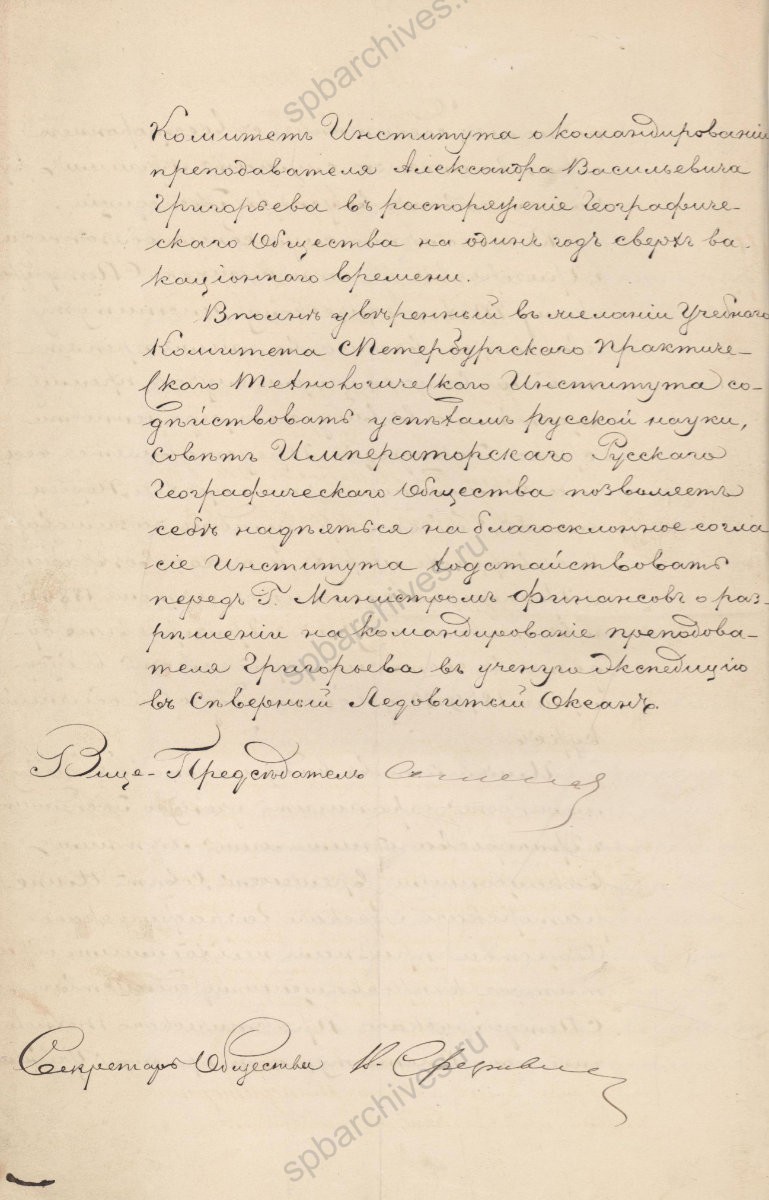 spbarchives.ru
Комитетъ Института о командированіи
преподавателя Александра Васильевича
Григорьева въ распоряженіе Географиче-
скаго Общества на одинъ годъ сверхъ ва-
каціоннаго времени.
Вполнѣ увѣренный въ желаніи Учебнаго
Комитета СПетербургскаго Практиче-
скаго Технологическаго Института со-
дѣйствовать успѣхамъ русской науки,
Совѣтъ Императорскаго Русскаго
Географическаго Общества позволяетъ
себѣ надѣяться на благосклонное согла
сіе Института ходатайствовать
spbarchives.ru
передъ Г. Министромъ Финансовъ о раз-
рѣшеніи на командированіе преподова-
теля Григорьева въ ученую экспедицію
въ Сѣверный Ледовитый Океанъ.
Вице-Предсѣдатель
Секретарь Общества В.
spbarchives.ru